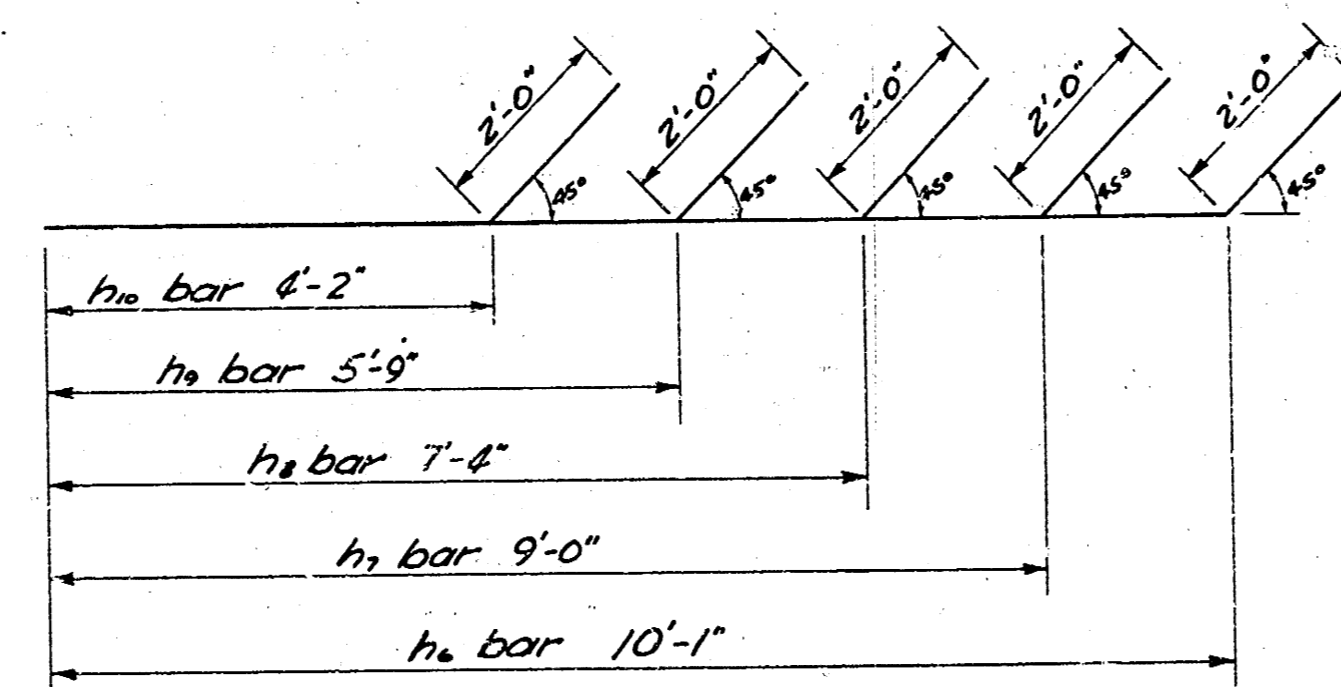 2'-0" 2'-0" 2'-0" 2'-0" 2'-0"
45° 45° 45° 45° 45°
h₁₀ bar 4'-2"
h₉ bar 5'-9"
h₈ bar 7'-4"
h₇ bar 9'-0"
h₆ bar 10'-1"